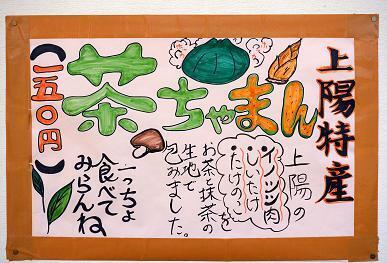 上陽特産
茶ちゃまん
(一五〇円)
上陽の
イノシシ肉
しいたけ
たけのこを
お茶と抹茶の
生地で
包みました。
一っちょ
食べて
みらんね